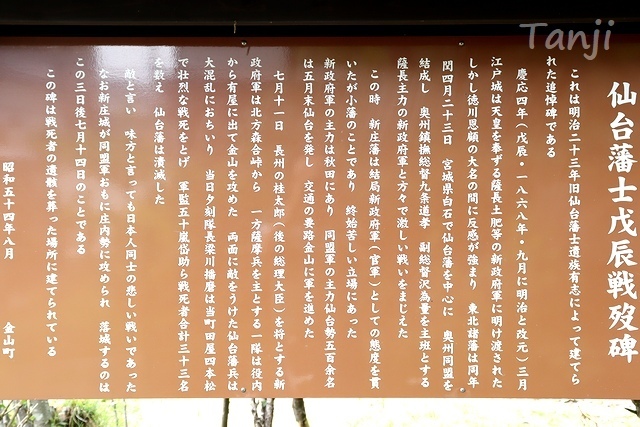 Tanji
仙台藩士戊辰戦歿碑
これは明治二十三年旧仙台藩士遺族有志によって建てら
れた追悼碑である
慶応四年(戊辰・一八六八年・九月に明治と改元)三月
江戸城は天皇を奉ずる薩長土肥等の新政府軍に明け渡された
しかし徳川恩顧の大名の間に反感が強まり 東北諸藩は同年
閏四月二十三日 宮城県白石で仙台藩を中心に 奥州同盟を
結成し 奥州鎮撫総督九条道孝 副総督沢為量を主班とする
薩長主力の新政府軍と方々で激しい戦いをまじえた
この時 新庄藩は結局新政府軍(官軍)としての態度を貫
いたが小藩のことであり 終始苦しい立場にあった
新政府軍の主力は秋田にあり 同盟軍の主力仙台勢五百余名
は五月末仙台を発し 交通の要路金山に軍を進めた
七月十一日 長州の桂太郎(後の総理大臣)を将とする新
政府軍は北方森合峠から 一方薩摩兵を主とする一隊は役内
から有屋に出て金山を攻めた 両面に敵をうけた仙台藩兵は
大混乱におちいり 当日夕刻隊長梁川播磨は当町田屋四本松
で壮烈な戦死をとげ 軍監五十嵐岱助ら戦死者合計三十三名
を数え 仙台藩は潰滅した
敵と言い 味方と言っても日本人同士の悲しい戦いであった
なお新庄城が同盟軍おもに庄内勢に攻められ 落城するのは
この三日後七月十四日のことである
この碑は戦死者の遺骸を葬った場所に建てられている
昭和五十四年八月 金山町